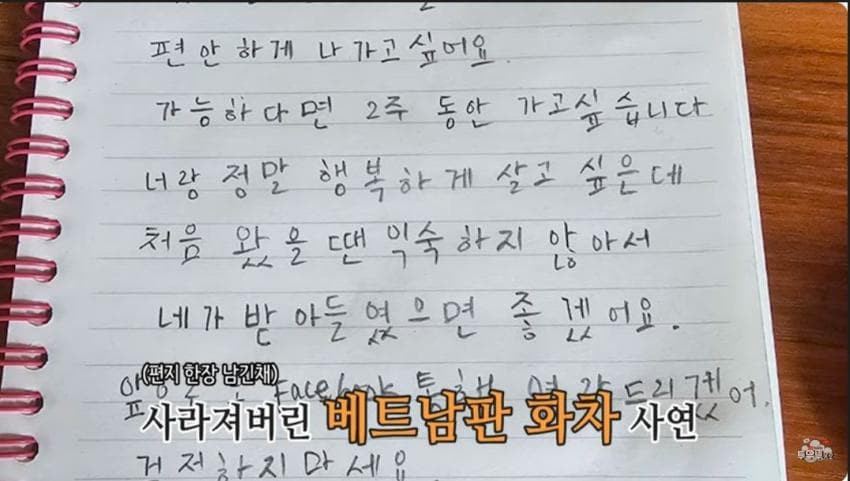 편안하게 나가고싶어요.
가능하다면 2주 동안 가고싶습니다
너랑 정말 행복하게 살고 싶은데
처음 왔을 땐 익숙하지 않아서
네가 받아들였으면 좋겠어요.
(편지 한장 남긴채)
Facebook 드리겠어.
사라져버린 베트남판 화차 사연
걱정하지마세요